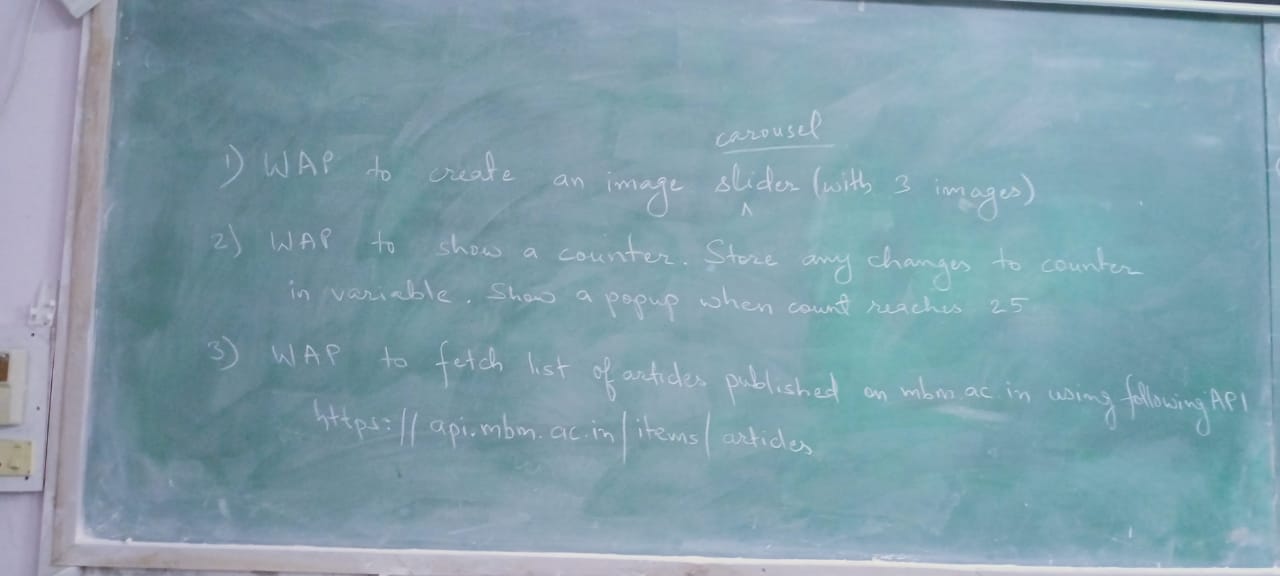 carousel
1) WAP to create an image slider (with 3 images)
^
2) WAP to show a counter. Store any changes to counter
in variable. Show a popup when count reaches 25
3) WAP to fetch list of articles published on mbm.ac.in using following API
https://api.mbm.ac.in/items/articles